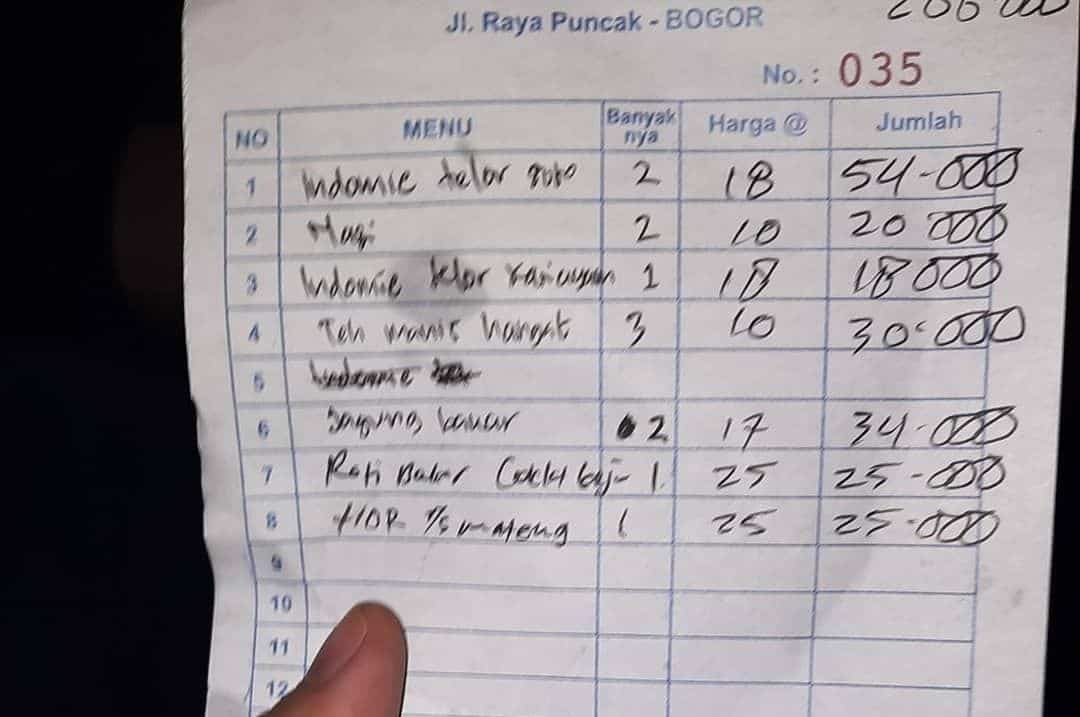 Jl. Raya Puncak - BOGOR 206 000
No. : 035
NO MENU Banyak nya Harga @ Jumlah
1 Indomie telor soto 2 18 54-000
2 Nasi 2 10 20 000
3 Indomie telor 1 18 18 000
4 Teh manis hangat 3 10 30.000
5
6 Jagung bakar 2 17 34.000
7 Roti Bakar Coklt kej- 1 25 25-000
8 1 25 25.000
9
10
11
12